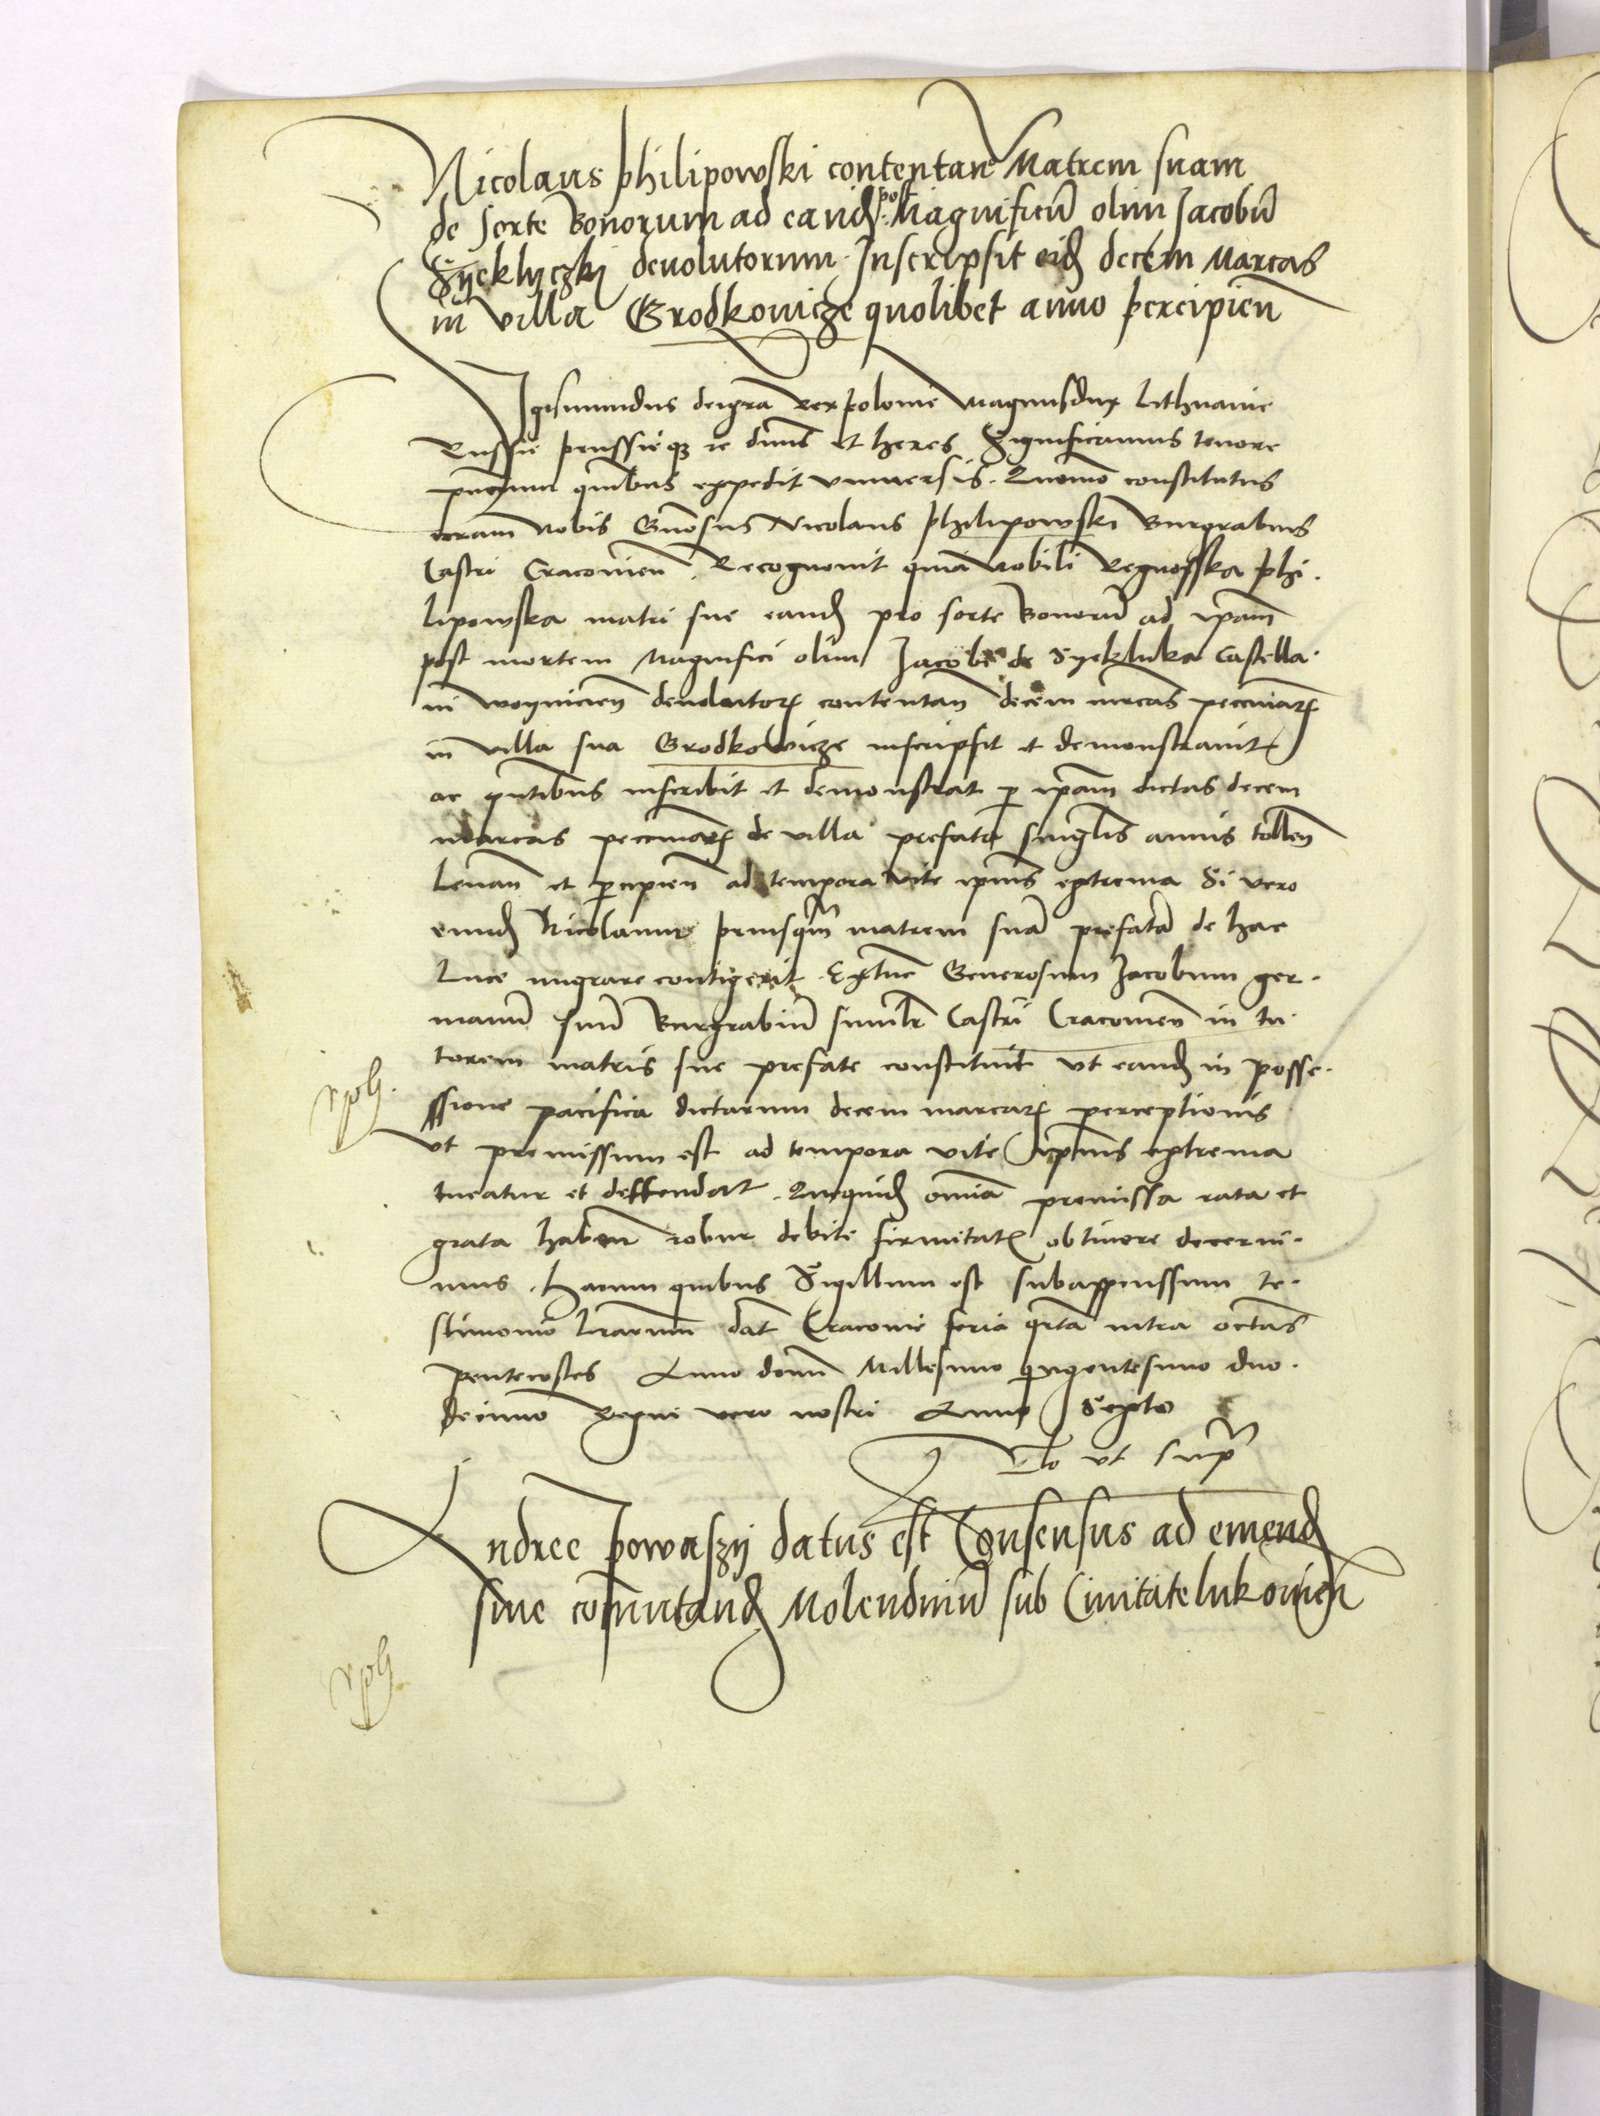 Nicolaus philipowski contentan Matrem suam
de sorte Bonorum ad eand post Magnificū olim Jacobū
Syeklyczky deuolutorum Inscripsit eid decem Marcas
in villa Grodkouicze quolibet anno percipien
Sigismundus dei gra Rex polonie Magnus dux Lithuanie
Russie prussieq̄ ꝛc dnus et heres Significamus tenore
pntium quibus expedit vniuersis. Quomo constitutus
coram nobis Gnosus Nicolaus philipowski Burgrabius
Castri Cracouien. Recognouit quia Nobili Regnosska phi.
lipowska matri sue eand pro sorte Bonorū ad ipam
post mortem Magnifici olim Jacobi de Syekluka Castella.
ni woynicien deuolutor contentan decem mrcas pecuniar
in villa sua Grodkowicze inscripsit et demonstrauit
ac pntibus inscribit et demonstrat p ipam dictas decem
marcas pecuniar de villa prefata singlis annis tollen
Leuan et pcipien ad tempora vite ipius extrema Si vero
eund Nicolaum priusqm matrem suā prefatā de hac
Luce migrare contigerit. Extunc Generosum Jacobum ger.
manū suū Burgrabiū similr Castri Cracouien in tu.
torem matris sue prefate constituit vt eand in posse.
ssione pacifica dictarum decem marcar perceptionis
vt premissum est ad tempora vite ipius extrema
tueatur et deffendat. Que quid omia premissa rata et
grata haben robur debite firmitat obtinere decerni.
mus. harum quibus Sigillum est subappensum te.
stimonio Lrarum dat Cracouie feria qrta intra octas
pentecostes Anno domi Millesimo quigentesimo duo.
decimo Regni vero nostri Anno Sexto
Rlo vt supr
Andree powaszy datus est Consensus ad emend
siue comutand Molendinū sub Ciuitate lukouien